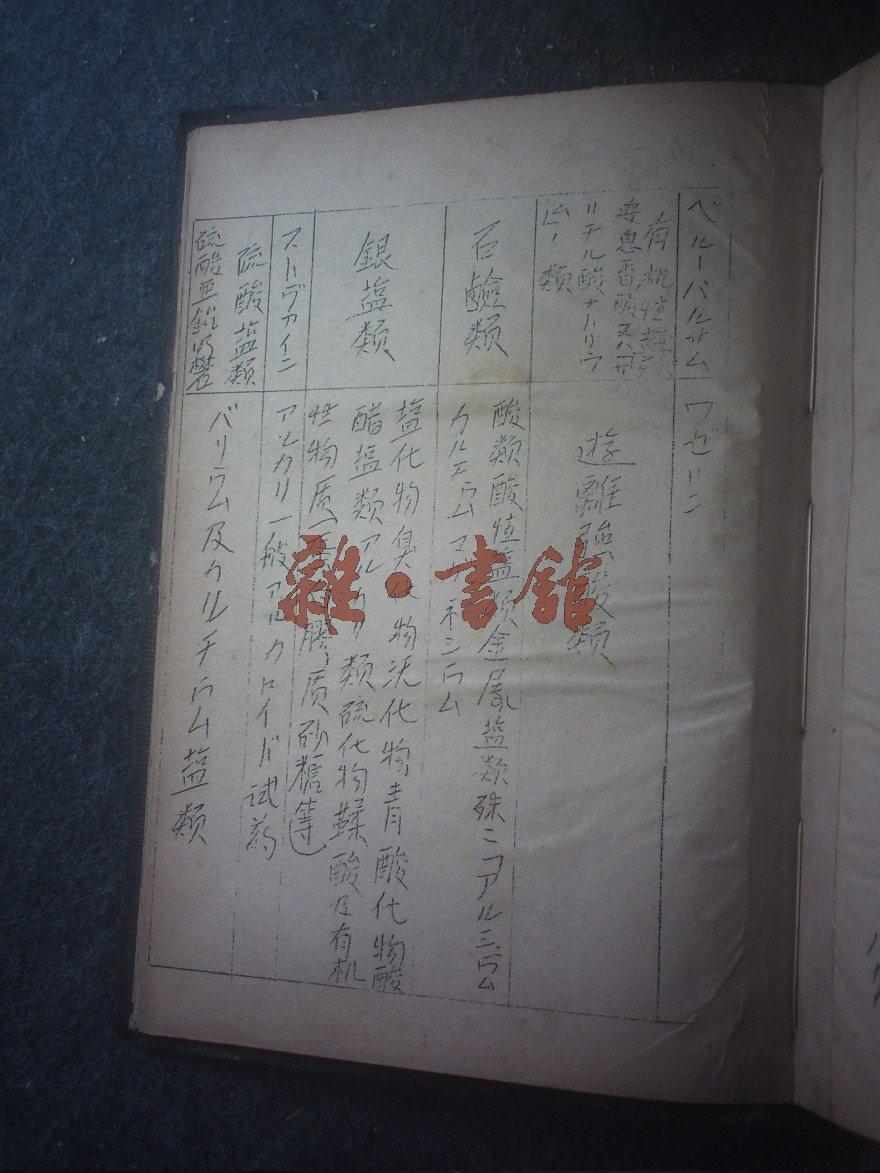 ペルーバルサム
ワゼリン
有机性塩類
安息香酸又ハ
リチル酸ナトリウ
ムノ類
遊離強酸類
石鹼類
酸類酸性塩類金属塩類殊ニアルミニウム
カルチウムマグネシウム
銀塩類
塩化物臭化物沃化物青酸化物酸
醋塩類アルカリ類硫化物鞣酸及有机
性物质 膠质砂糖等
ストヴァイン
アルカリ一般アルカロイド试葯
硫酸塩類
硫酸亜鉛明礬
バリウム及カルチウム塩類
雜·書館